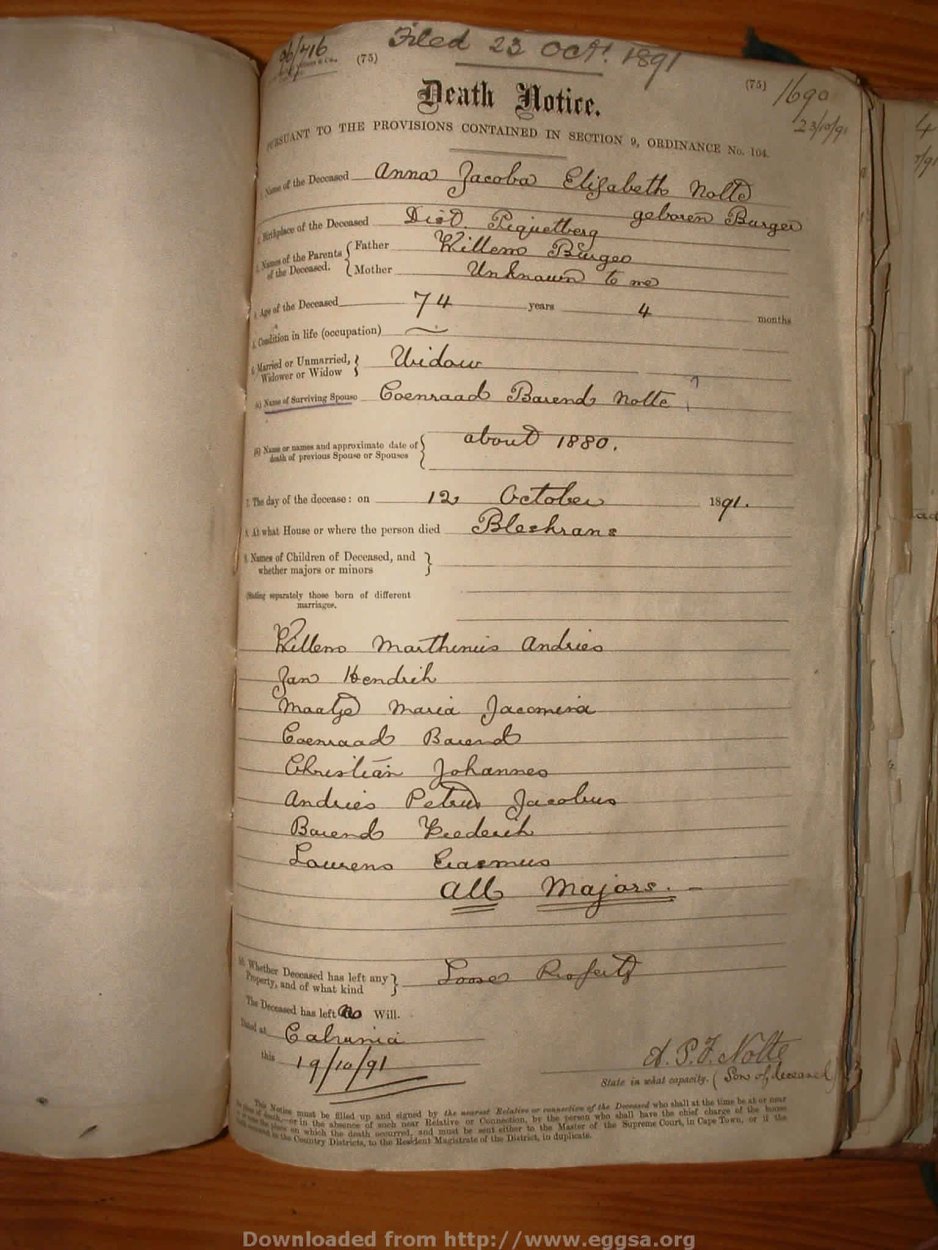 96/716
(75)
Filed 23 Oct. 1891
(75)
1690
23/10/91
Death Notice.
PURSUANT TO THE PROVISIONS CONTAINED IN SECTION 9, ORDINANCE No. 104.
1. Name of the Deceased Anna Jacoba Elizabeth Nolte
geboren Burger
2. Birthplace of the Deceased Dist. Piquetberg
3. Names of the Parents of the Deceased. { Father Willem Burger
Mother Unknown to me
4. Age of the Deceased 74 years 4 months
5. Condition in life (occupation) —
6. Married or Unmarried, Widower or Widow } Widow
(a) Name of Surviving Spouse Coenraad Barend Nolte
(b) Name or names and approximate date of death of previous Spouse or Spouses { about 1880.
7. The day of the decease: on 12 October 1891.
8. At what House or where the person died Bleskrans
9. Names of Children of Deceased, and whether majors or minors }
(Stating separately those born of different marriages.
Willem Marthinus Andries
Jan Hendrik
Maatje Maria Jacomina
Coenraad Barend
Christian Johannes
Andries Petrus Jacobus
Barend Frederik
Laurens Erasmus
All Majors. —
10. Whether Deceased has left any Property, and of what kind } Loose Property
The Deceased has left No Will.
Dated at Calvinia
this 19/10/91
A. P. J. Nolte
State in what capacity. (Son of deceased)
This Notice must be filled up and signed by the nearest Relative or connection of the Deceased who shall at the time be at or near
the place of death,—or in the absence of such near Relative or Connection, by the person who shall have the chief charge of the house
or the place on which the death occurred, and must be sent either to the Master of the Supreme Court, in Cape Town, or if the
death occurred in the Country Districts, to the Resident Magistrate of the District, in duplicate.
Downloaded from http://www.eggsa.org